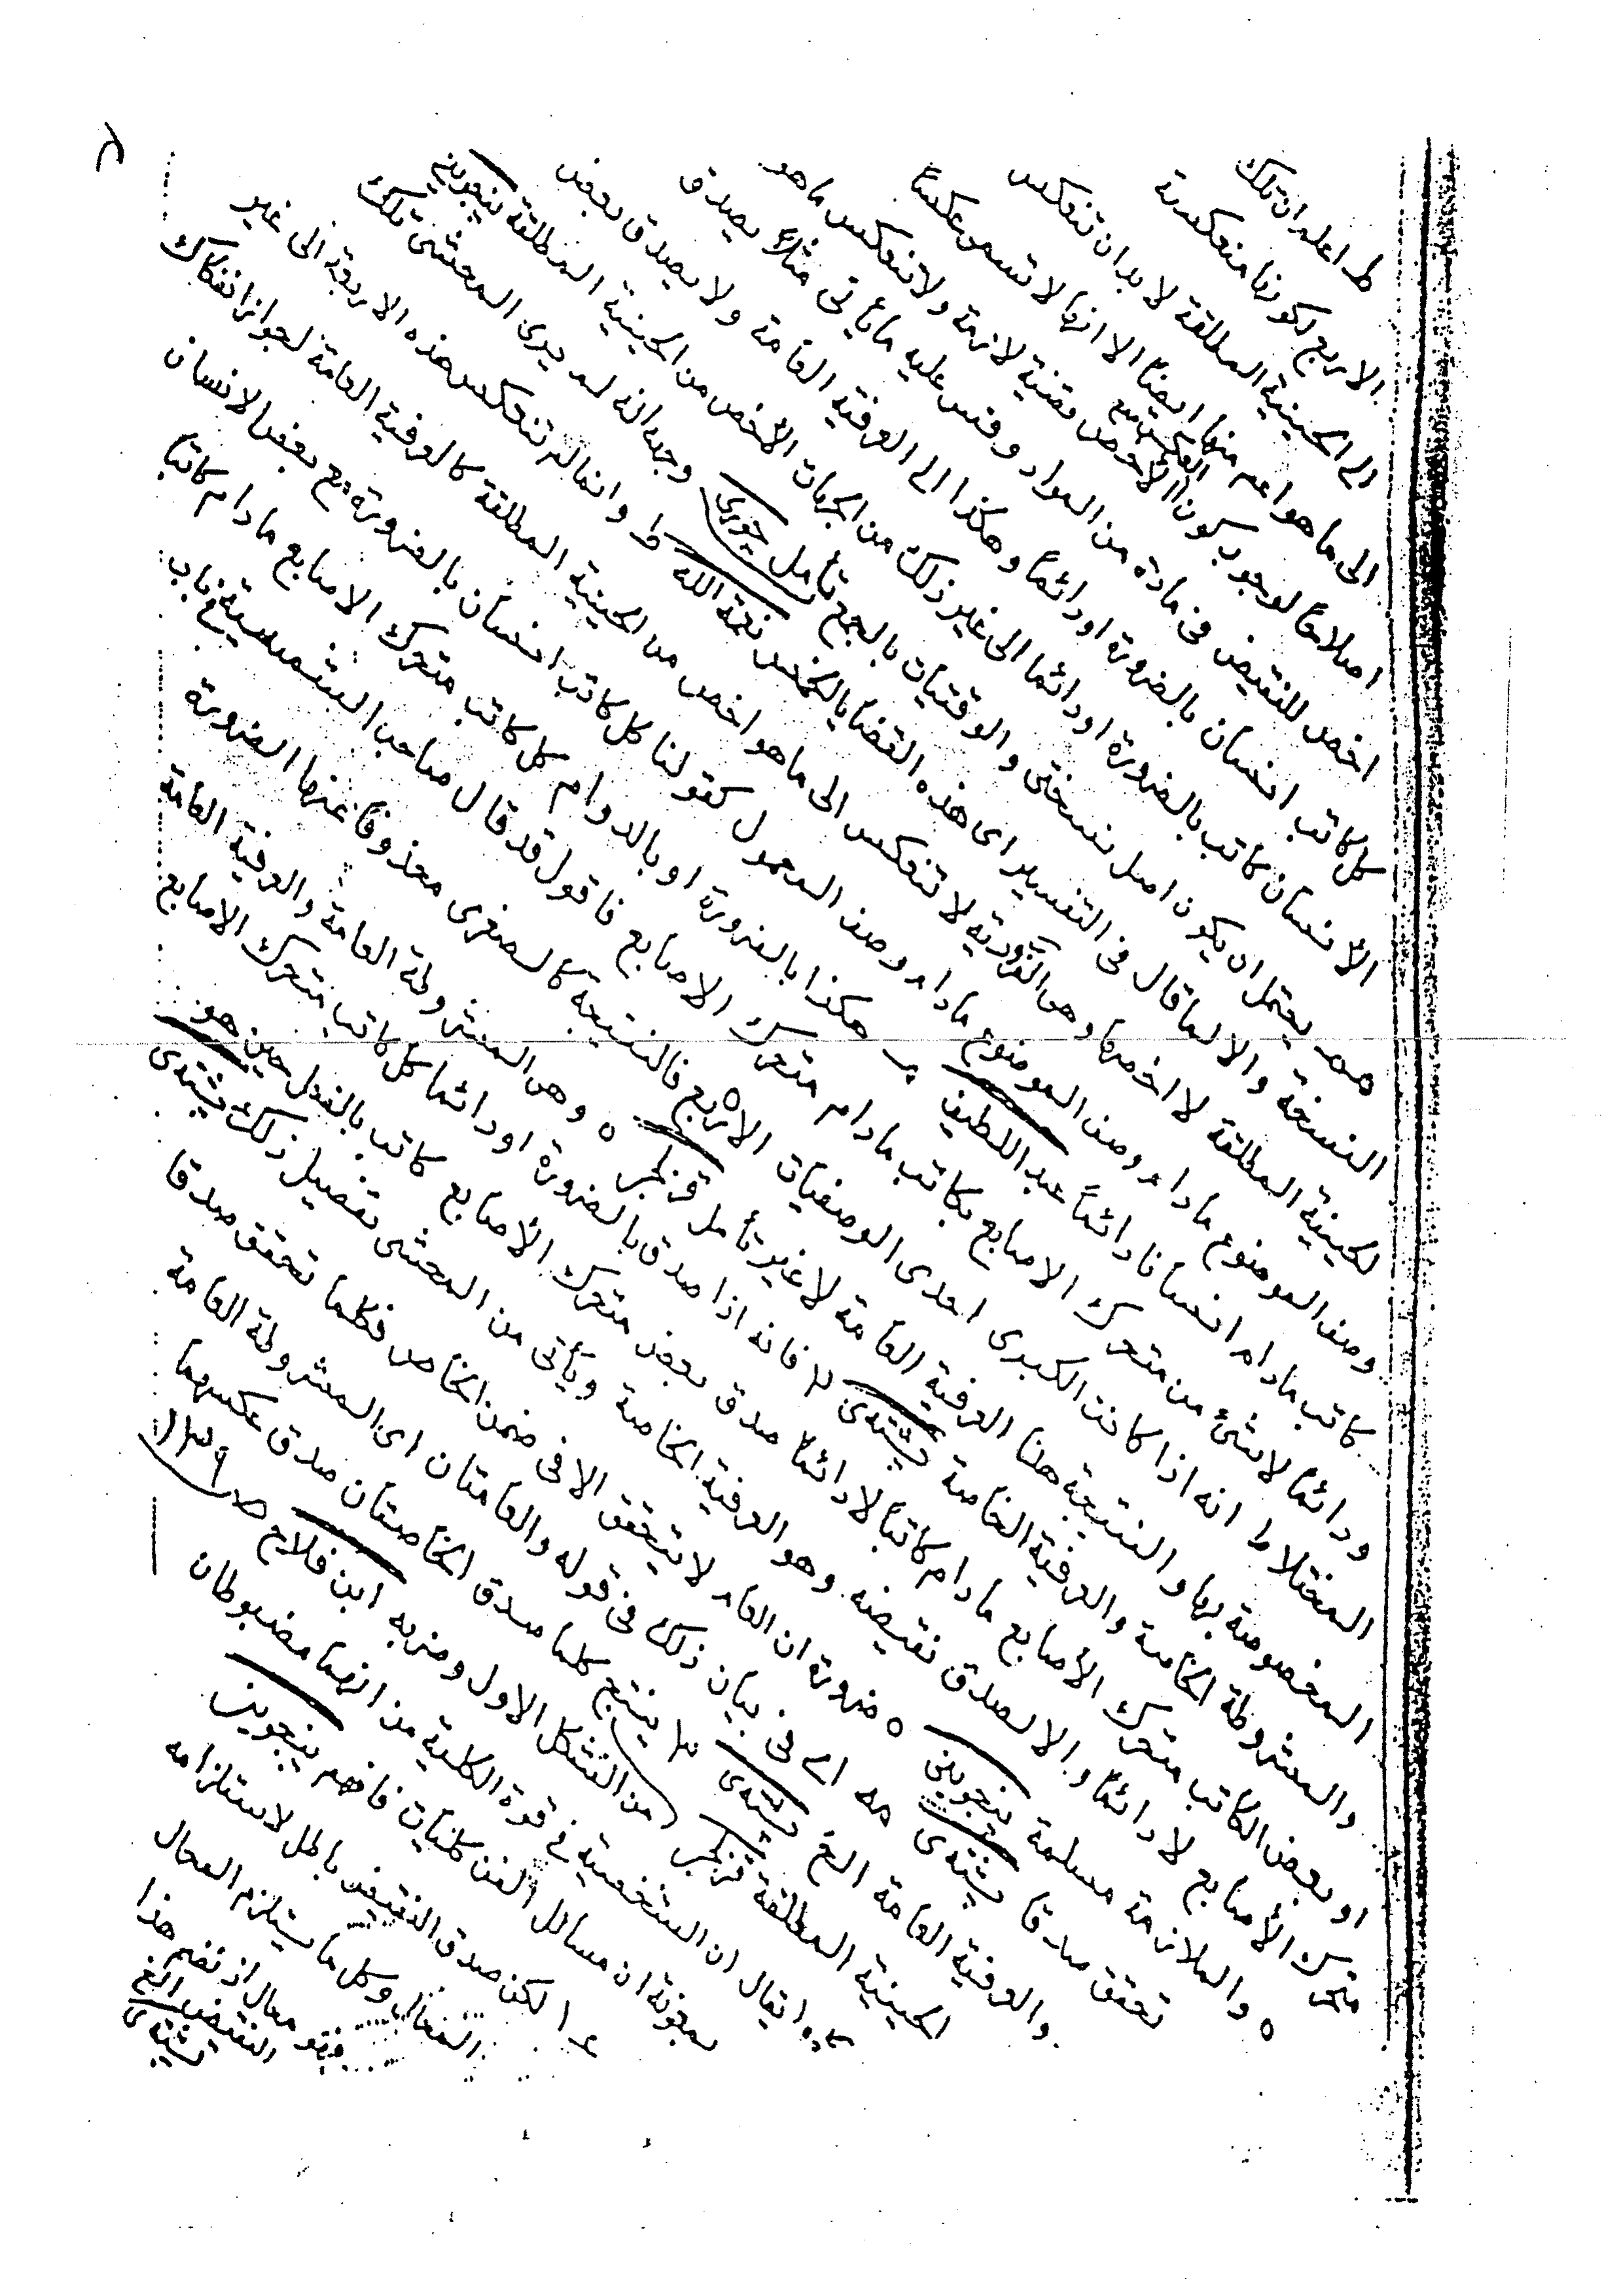 ط اعلم ان تلك
الاربع لكونها منعكسة
الى الحينية المطلقة لا بد ان تنعكس
الى ما هو اعم منها ايضًا الا انها لا تسمى عكسًا
اصلاحًا لوجوب كون العكس مع الأخص قضية لازمة ولا تنعكس ما هو
اخص للنقيض فى مادة من المواد وقس عليه ما يأتى مثلاً يصدق
كل كاتب انسان بالضرورة او دائمًا وهكذا الى العرفية العامة ولا يصدق بعض
الأنسان كاتب بالضرورة او دائما الى غير ذلك من الجهات الأخص من الحينية المطلقة ينجوينى
يحتمل ان يكون اصل نسختى والوقتيان بالجمع تأمل جورى وجهه انه لم يدرى المحشى تلك
النسخة والا لما قال فى التفسير اى هذه القضايا الخمس نعمة الله ط وانما لم تنعكس هذه الاربعة الى غير
الحينية المطلقة لا اخصها وهى لا تنعكس الى ما هو اخص من الحينية المطلقة كالعرفية العامة لجواز انفكاك
وصف الموضوع مادام وصف الموضوع مادام وصف المحمول كقولنا كل كاتب انسان بالضرورة مع بعض الانسان
كاتب مادام انسانا دائمًا عبد اللطيف ب هكذا بالضرورة او بالدوام كل كاتب متحرك الاصابع مادام كاتبا
ودائمًا لا شئ من متحرك الاصابع بكاتب مادام متحرك الاصابع فاقول قد قال صاحب الشمسية فى باب
المختلاط انه اذا كانت الكبرى احدى الوصفيات الاربع فالنتيجة كالصغرى محذوفًا عنها الضرورة
المخصوصة بها والنتيجة هنا العرفية العامة لا غير تأمل قزلجى ٥ وهى المشروطة العامة والعرفية العامة
والمشروطة الخاصة والعرفية الخاصة يشتدى ٢ فانه اذا صدق بالضرورة او دائما كل كاتب متحرك الاصابع
او بعض الكاتب متحرك الأصابع مادام كاتبًا لا دائمًا صدق بعض متحرك الأصابع كاتب بالفعل حين هو
متحرك الأصابع لا دائمًا والا لصدق نقيضه وهو العرفية الخاصة ويأتى من المحشى تفصيل ذلك يشتدى
٥ والملازمة مسلمة ينجوينى ٥ ضرورة ان العام لا يتحقق الا فى ضمن الخاص فكلما تحقق صدقا
تحقق صدقا يشتدى مه اى فى بيان ذلك فى قوله والعامتان اى المشروطة العامة
والعرفية العامة الخ يشتدى ٢ ينتج كلما صدق الخاصتان صدق عكسهما
الحينية المطلقة قزلجى من الشكل الاول وضربه ابن فلاح صـ
يقال ان الشخصية فى قوة الكلية من انهما مضبوطان
بمعونة ان مسائل الفن كليات فافهم ينجوين
لكن صدق النقيض باطل لاستلزامه
المحال وكل ما يستلزم المحال
فهو محال اذ نضم هذا
النقيض الخ
يشتدى